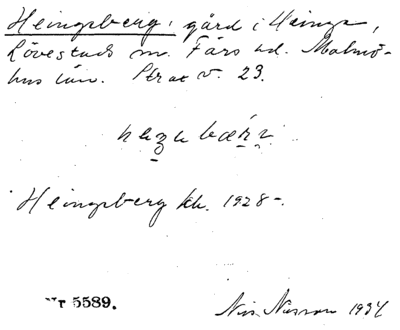 Heingsberg, gård i Heinge,
Lövestads sn. Färs hd. Malmö-
hus län. Strax v. 23.
Heingsberg kh. 1928-.
Nr 5589. Nils Nilsson 1934